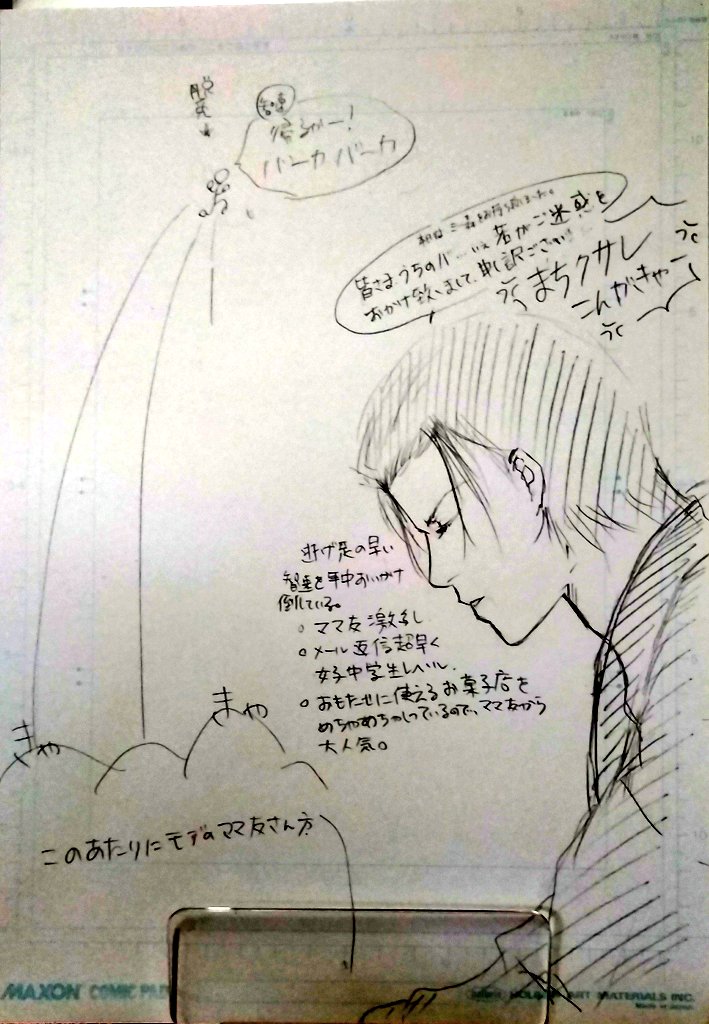 脱兎
智恵
帰るかー!
バーカバーカ
皆さまうちのバー
若がご迷惑を
おかけ致しまして、申し訳ございま
まちクサレ
こんがきゃー
逃げ足の早い
を年中おいかけ
倒している。
○ ママ友激多し
○ メール返信超早く
女子中学生レベル.
○ おもたせに使えるお菓子店を
めちゃめちゃしっているので、ママ友から
大人気。
きゃ
きゃ
このあたりにモブのママ友さん方
MAXON COMIC PAD
ART MATERIALS INC.
MADE IN JAPAN